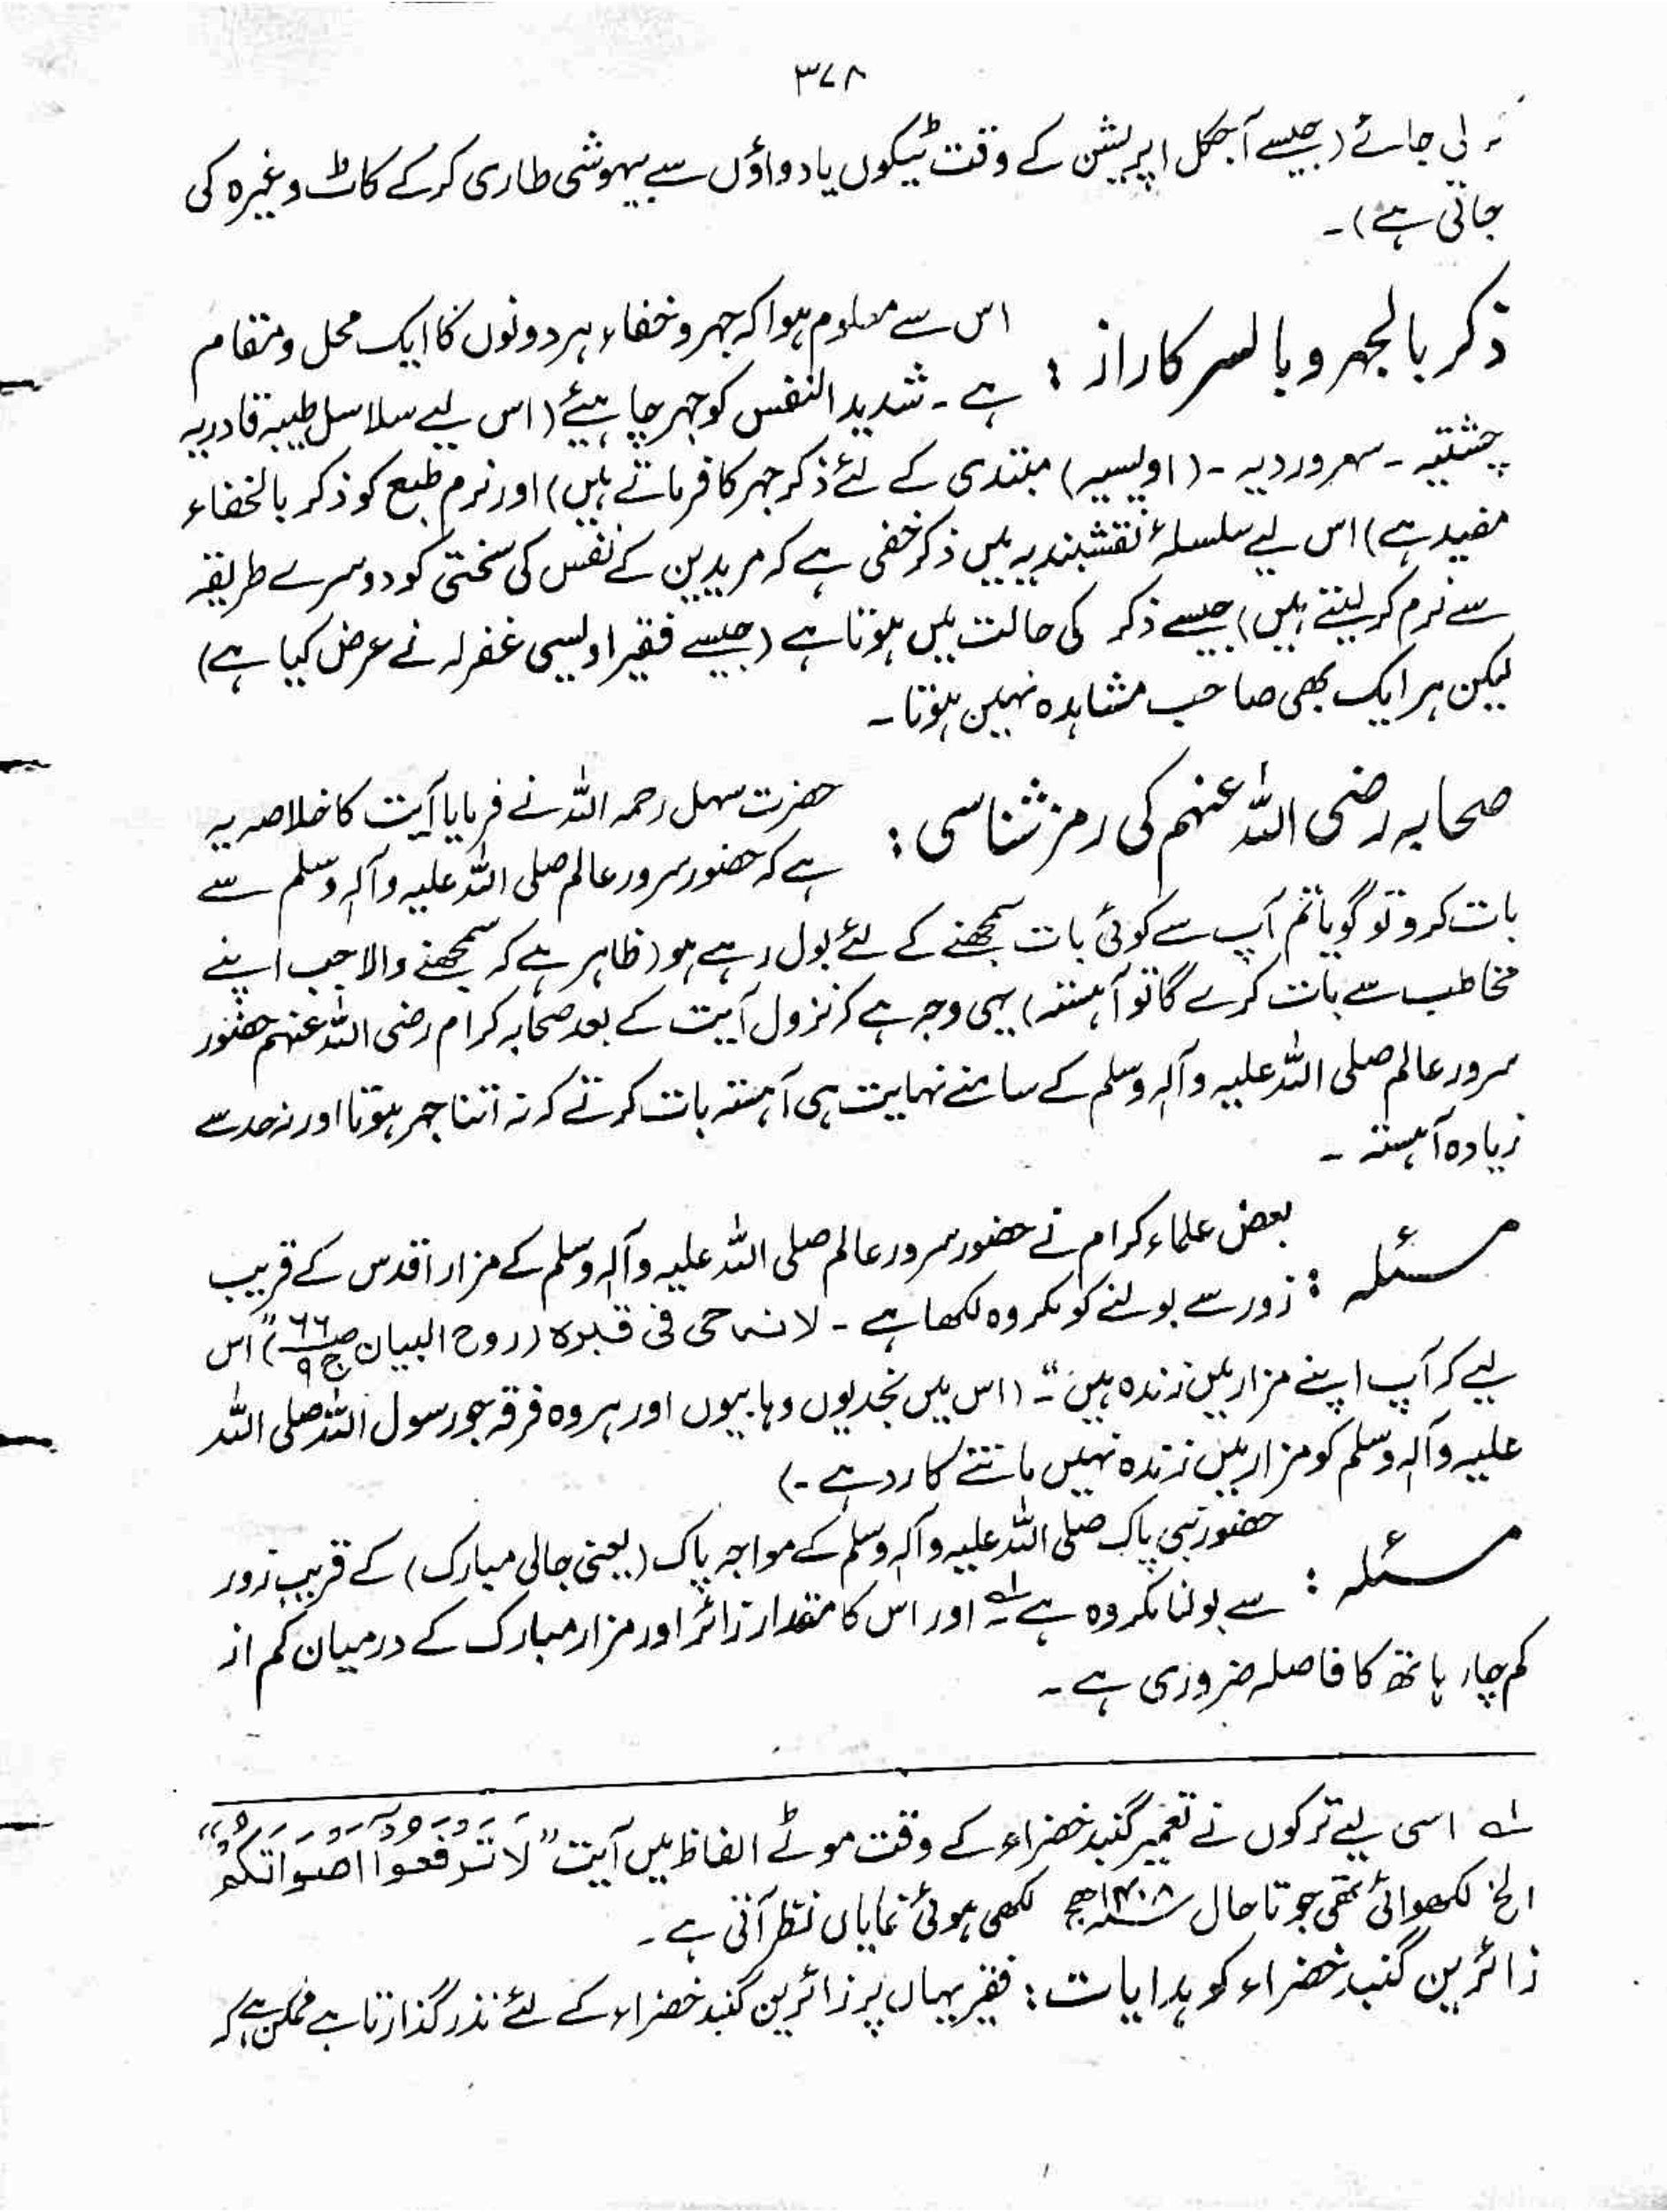 ۳۷۸
نہ لی جائے (جیسے آجکل اپریشن کے وقت ٹیکوں یا دواؤں سے بیہوشی طاری کرکے کاٹ وغیرہ کی
جاتی ہے)۔
ذکر بالجہر و بالسر کا راز :
اس سے معلوم ہوا کہ جہر و خفاء ہر دونوں کا ایک محل و مقام
ہے۔ شدید النفس کو جہر چاہیئے (اس لیے سلاسل طیبہ قادریہ
چشتیہ۔ سہروردیہ۔ (اویسیہ) مبتدی کے لئے ذکر جہر کا فرماتے ہیں) اور نرم طبع کو ذکر بالخفاء
مفید ہے) اس لیے سلسلۂ نقشبندیہ میں ذکر خفی ہے کہ مریدین کے نفس کی سختی کو دوسرے طریقہ
سے نرم کر لیتے ہیں) جیسے ذکر کی حالت میں ہوتا ہے (جیسے فقیر اویسی غفرلہ نے عرض کیا ہے)
لیکن ہر ایک بھی صاحب مشاہدہ نہیں ہوتا۔
صحابہ رضی اللہ عنہم کی رمز شناسی :
حضرت سہل رحمہ اللہ نے فرمایا آیت کا خلاصہ یہ
ہے کہ حضور سرور عالم صلی اللہ علیہ وآلہ وسلم سے
بات کرو تو گویا تم آپ سے کوئی بات سمجھنے کے لئے بول رہے ہو (ظاہر ہے کہ سمجھنے والا جب اپنے
مخاطب سے بات کرے گا تو آہستہ) یہی وجہ ہے کہ نزول آیت کے بعد صحابہ کرام رضی اللہ عنہم حضور
سرور عالم صلی اللہ علیہ وآلہ وسلم کے سامنے نہایت ہی آہستہ بات کرتے کہ نہ اتنا جہر ہوتا اور نہ حد سے
زیادہ آہستہ ۔
مسئلہ :
بعض علماء کرام نے حضور سرور عالم صلی اللہ علیہ وآلہ وسلم کے مزار اقدس کے قریب
زور سے بولنے کو مکروہ لکھا ہے۔ لانہ حی فی قبرہ (روح البیان ص ۶۶ ج ۹) "اس
لیے کہ آپ اپنے مزار میں زندہ ہیں"۔ (اس میں نجدیوں وہابیوں اور ہر وہ فرقہ جو رسول اللہ صلی اللہ
علیہ وآلہ وسلم کو مزار میں زندہ نہیں مانتے کا رد ہے۔)
مسئلہ :
حضور نبی پاک صلی اللہ علیہ وآلہ وسلم کے مواجہ پاک (یعنی جالی مبارک) کے قریب زور
سے بولنا مکروہ ہے ؎۱ اور اس کا مقدار زائر اور مزار مبارک کے درمیان کم از
کم چار ہاتھ کا فاصلہ ضروری ہے۔
؎۱ اسی لیے ترکوں نے تعمیر گنبد خضراء کے وقت موٹے الفاظ میں آیت "لَا تَرْفَعُوْٓا اَصْوَاتَكُمْ"
الخ لکھوائی تھی جو تا حال ۱۴۰۸ھ لکھی ہوئی نمایاں نظر آتی ہے۔
زائرین گنبد خضراء کو ہدایات : فقیر یہاں پر زائرین گنبد خضراء کے لئے نذر گذارتا ہے ممکن ہے کہ